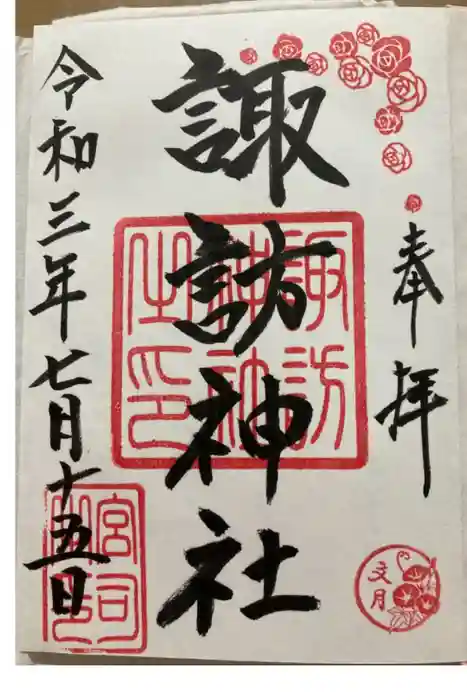 奉拝
諏訪神社
諏訪神社之印
令和三年七月十五日
宮司之印
文月